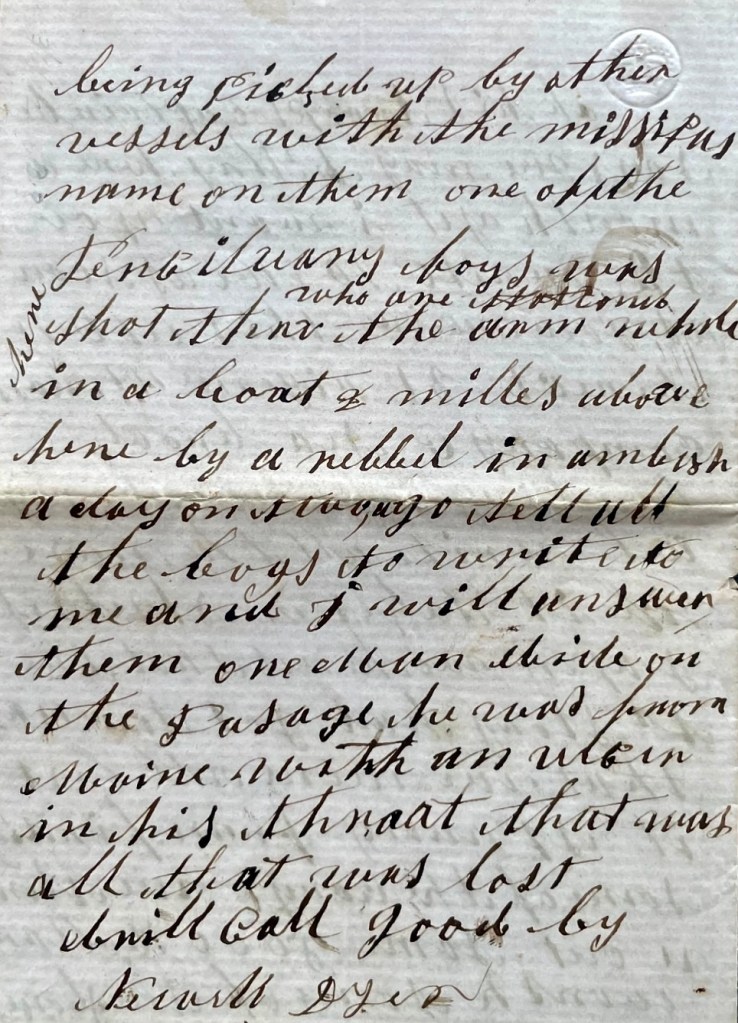 being picked up by other
vessels with the missipas
name on them one of the
Pencilvany boys was
who are stationd
here
shot thrx the arm while
in a boat 2 milles above
here by a rebbel in ambush
a day or two ago tell all
the boys to write to
me and I will answer
them one man dide on
the Pasage he was from
Maine with an ulcer
in his throat that was
all that was lost
drill call good by
Newell Dyer